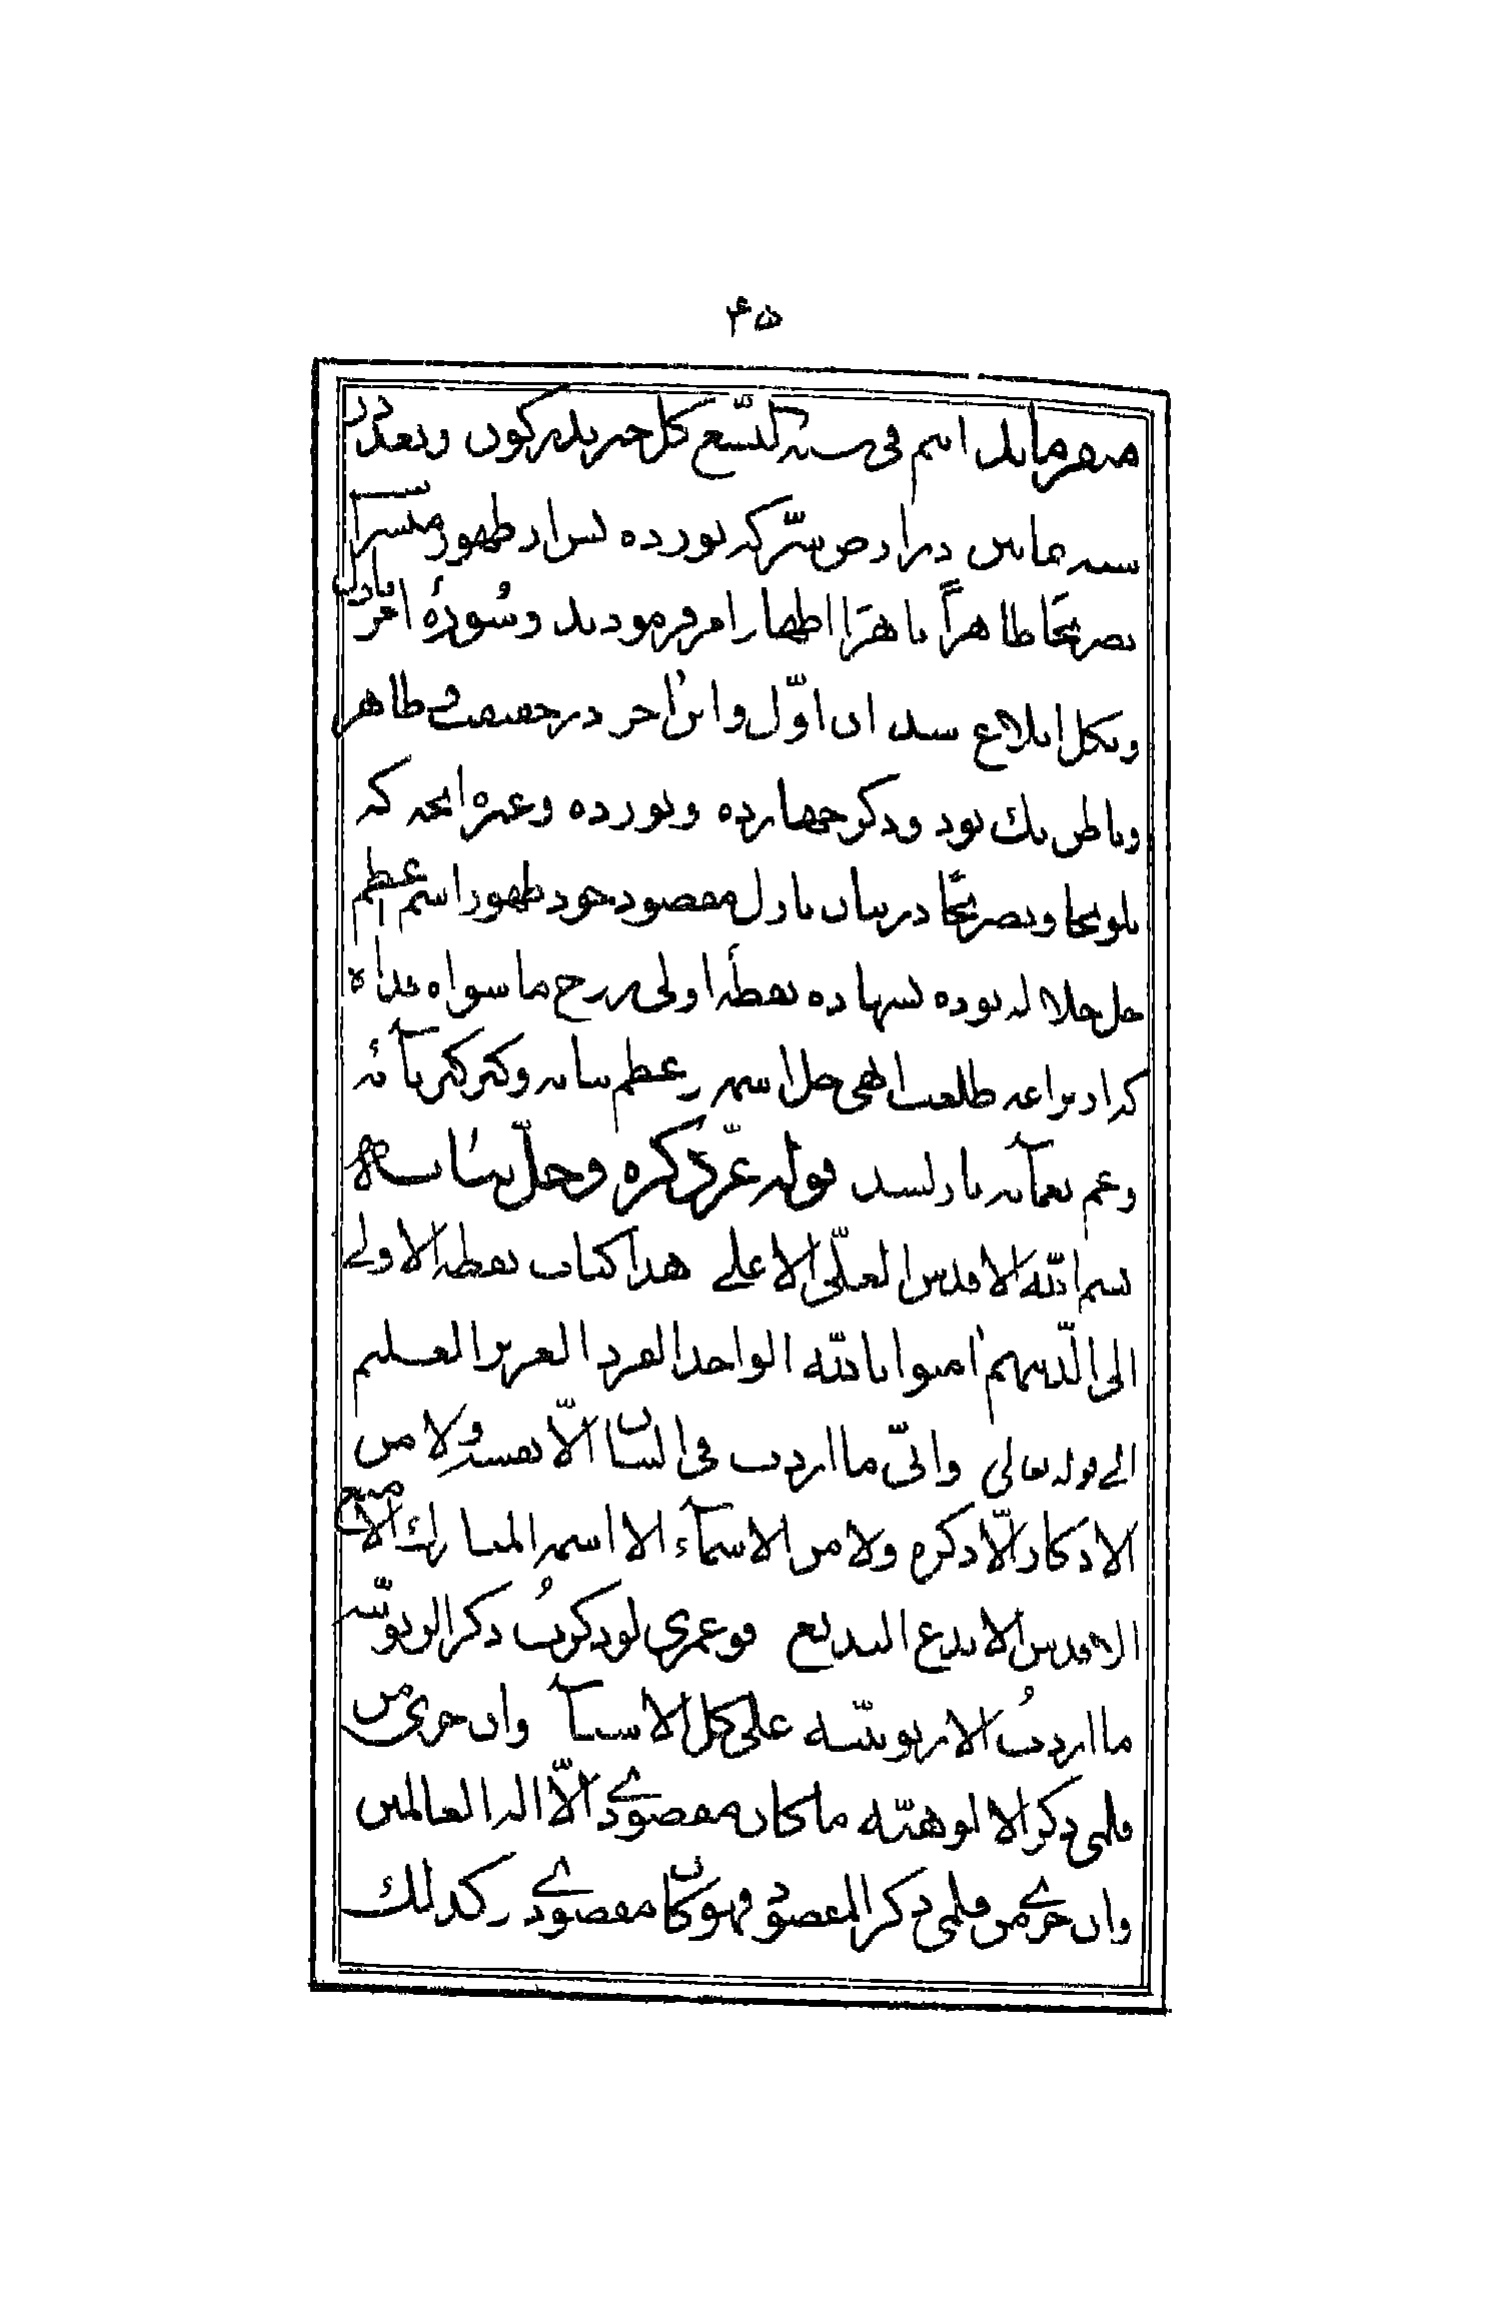 ۴۵
میفرماید انتم فی سنة التّسع کل خیر تدرکون و بعد در
سنه ثمانین در ارض سرّ که نوزده نس از ظهور
تصریحًا ظاهراً باهرًا اظهار امر فرمودند و سُورهٔ
و بکل ابلاغ شد ان اوّل و این اخر در حقیقت و ظاهر
و باطن یک بود و ذکر چهارده و نوزده و غیره انچه که
تلویحا و تصریحًا در بیان نازل مقصود خود ظهور اسم اعظم
جل جلاله بوده بشهاده نقطهٔ اولی روح ما سواه فداه
که از یراعه طلعت ابهی جل اسمه و عظم شانه و کبر کبریآئه
و عم نعمآئه نازلشد قوله عزّ ذکره و جلّ بیانه
بسم اللّه الاقدس العلّی الاعلی هذا کتاب نقطه الاولی
الی الّذینهم امنوا باللّه الواحد الفرد العزیز العلیم
الی قوله تعالی و انّی ما اردت فی البیان الّا نفسه و لا من
الاذکار الّا ذکره و لا من الاسمآء الا اسمه المبارک الامنع
الاقدس الابدع البدیع فوعمری لو ذکرتُ ذکر الربوبیّه
ما اردتُ الا ربوبیّته علی کل الاشیآء و ان جری من
قلمی ذکر الالوهیّه ما کان مقصودی الّا اله العالمین
و ان جری من قلمی ذکر المقصود فهو کان مقصودی و کذلک